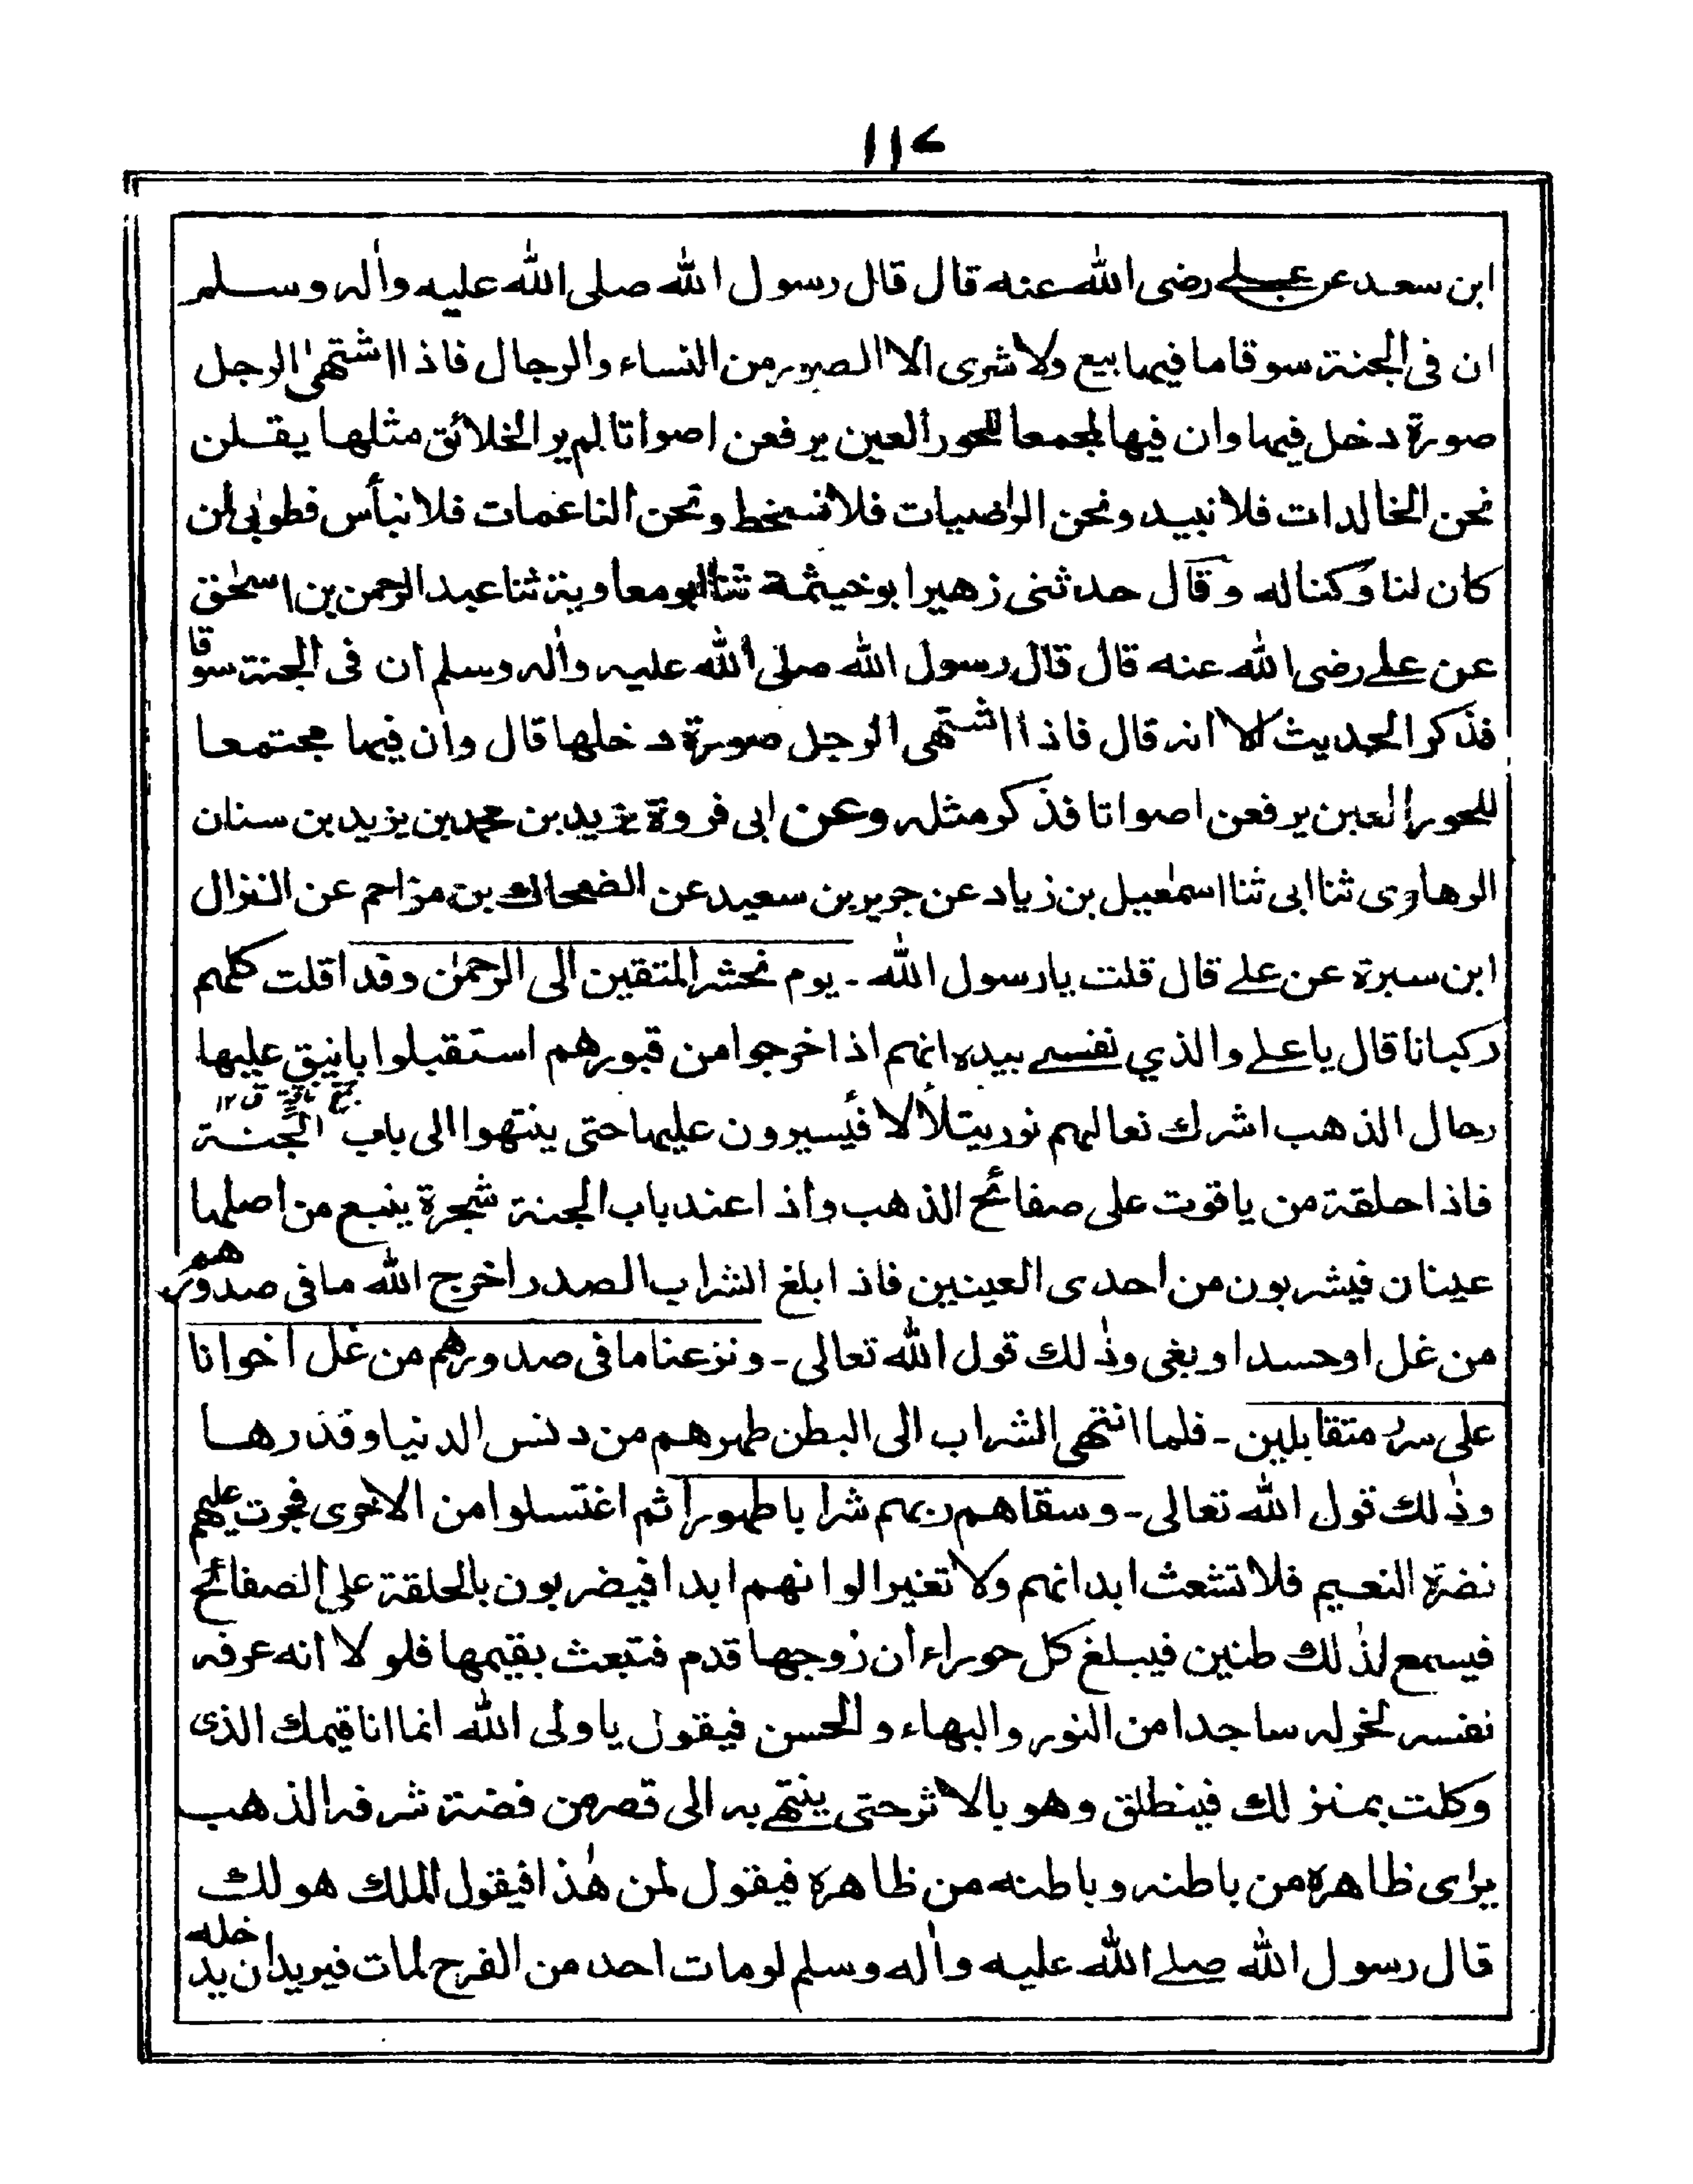 ١١٧
ابن سعد عن علے رضى الله عنه قال قال رسول الله صلى الله عليه واٰله وسلم
ان فى الجنة سوقا ما فيها بيع ولا شرى الا الصور من النساء والرجال فاذا اشتهىٰ الرجل
صورة دخل فيها وان فيها لمجمعا للحور العين يرفعن اصواتا لم ير الخلائق مثلها يقلن
نحن الخالدات فلا نبيد ونحن الراضيات فلا نسخط ونحن الناعمات فلا نبأس فطوبىٰ لمن
كان لنا وكنا له وقال حدثنى زهير ابو خيثمة ثنا ابو معاوية ثنا عبد الرحمن بن اسحٰق
عن علے رضى الله عنه قال قال رسول الله صلى الله عليه واٰله وسلم ان فى الجنة سوقا
فذكر الحديث الا انه قال فاذا اشتهى الرجل صورة دخلها قال وان فيها مجتمعا
للحور العين يرفعن اصواتا فذكر مثله وعن ابى فروة يزيد بن محمد بن يزيد بن سنان
الرهاوى ثنا ابى ثنا اسمٰعيل بن زياد عن جرير بن سعيد عن الضحاك بن مزاحم عن النزال
ابن سبرة عن علے قال قلت يا رسول الله ـ يوم نحشر المتقين الى الرحمٰن وفدا قلت كلهم
ركبانا قال يا علے والذي نفسے بيده انهم اذا خرجوا من قبورهم استقبلوا بانيق عليها
جمع ناقة ق ١٢
رحال الذهب اشرك نعالهم نور يتلألأ فيسيرون عليها حتى ينتهوا الى باب الجنة
فاذا حلقة من ياقوت على صفائح الذهب واذا عند باب الجنة شجرة ينبع من اصلها
عينان فيشربون من احدى العينين فاذا بلغ الشراب الصدر اخرج الله ما فى صدورهم
من غل او حسد او بغى وذٰلك قول الله تعالى ـ ونزعنا ما فى صدورهم من غل اخوانا
على سرر متقابلين ـ فلما انتهى الشراب الى البطن طهرهم من دنس الدنيا وقذرها
وذٰلك قول الله تعالى ـ وسقاهم ربهم شرابا طهورا ثم اغتسلوا من الاخرى فجرت عليهم
نضرة النعيم فلا تشعث ابدانهم ولا تغير الوانهم ابدا فيضربون بالحلقة على الصفائح
فيسمع لذٰلك طنين فيبلغ كل حوراء ان زوجها قدم فتبعث بقيمها فلو لا انه عرفه
نفسه لخر له ساجدا من النور والبهاء والحسن فيقول يا ولى الله انما انا قيمك الذى
وكلت بمنزلك فينطلق وهو بالاثر حتى ينتهے به الى قصر من فضة شرفه الذهب
يرٰى ظاهره من باطنه وباطنه من ظاهره فيقول لمن هٰذا فيقول الملك هو لك
قال رسول الله صلے الله عليه واٰله وسلم لو مات احد من الفرح لمات فيريد ان يدخله